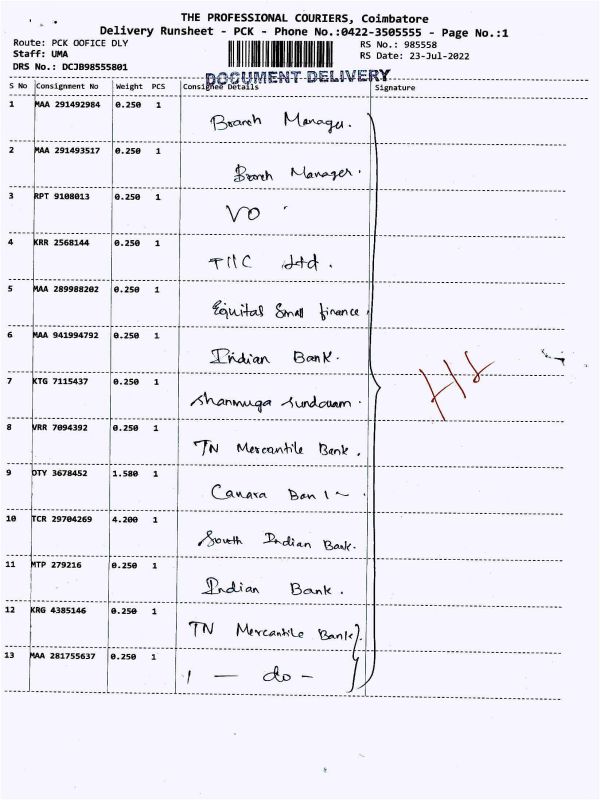 THE PROFESSIONAL COURIERS, Coimbatore
Delivery Runsheet - PCK - Phone No.:0422-3505555 - Page No.:1
Route: PCK OOFICE DLY RS No.: 985558
Staff: UMA RS Date: 23-Jul-2022
DRS No.: DCJB98555801
DOCUMENT DELIVERY
S No Consignment No Weight PCS Consignee Details Signature
1 MAA 291492984 0.250 1 Branch Manager.
2 MAA 291493517 0.250 1 Branch Manager.
3 RPT 9108013 0.250 1 VO
4 KRR 2568144 0.250 1 TIIC Ltd.
5 MAA 289988202 0.250 1 Equitas Small finance
6 MAA 941994792 0.250 1 Indian Bank.
7 KTG 7115437 0.250 1 Shanmuga Sundaram.
8 VRR 7094392 0.250 1 TN Mercantile Bank.
9 OTY 3678452 1.580 1 Canara Bank
10 TCR 29704269 4.200 1 South Indian Bank.
11 MTP 279216 0.250 1 Indian Bank.
12 KRG 4385146 0.250 1 TN Mercantile Bank
13 MAA 281755637 0.250 1 - do -